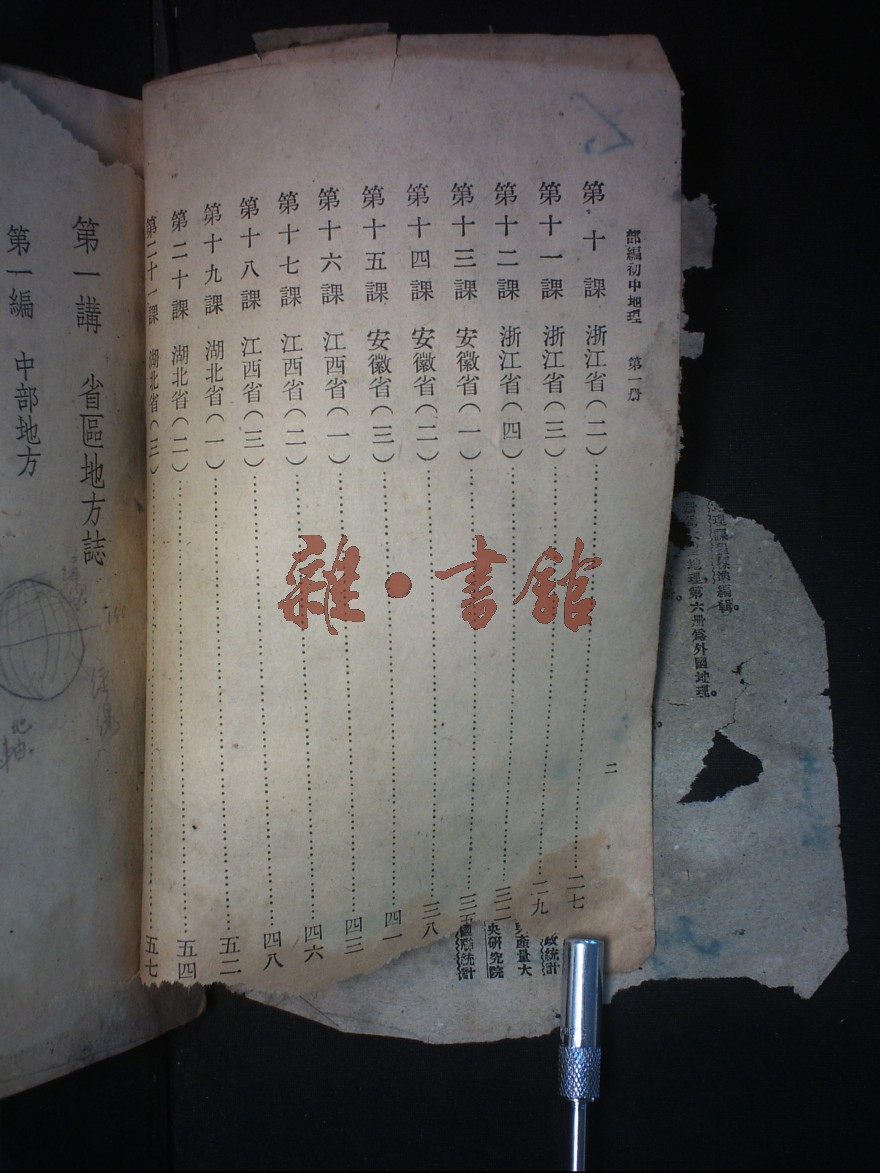 部編初中地理 第一册
二
第十課 浙江省(二)……二七
第十一課 浙江省(三)……二九
第十二課 浙江省(四)……三二
第十三課 安徽省(一)……三五
第十四課 安徽省(二)……三八
第十五課 安徽省(三)……四一
第十六課 江西省(一)……四三
第十七課 江西省(二)……四六
第十八課 江西省(三)……四八
第十九課 湖北省(一)……五二
第二十課 湖北省(二)……五四
第二十一課 湖北省(三)……五七
第一講 省區地方誌
第一編 中部地方
編輯。
地理。第六册爲外國地理。
政統計
產量大
央研究院
統計
地軸
雜·書館